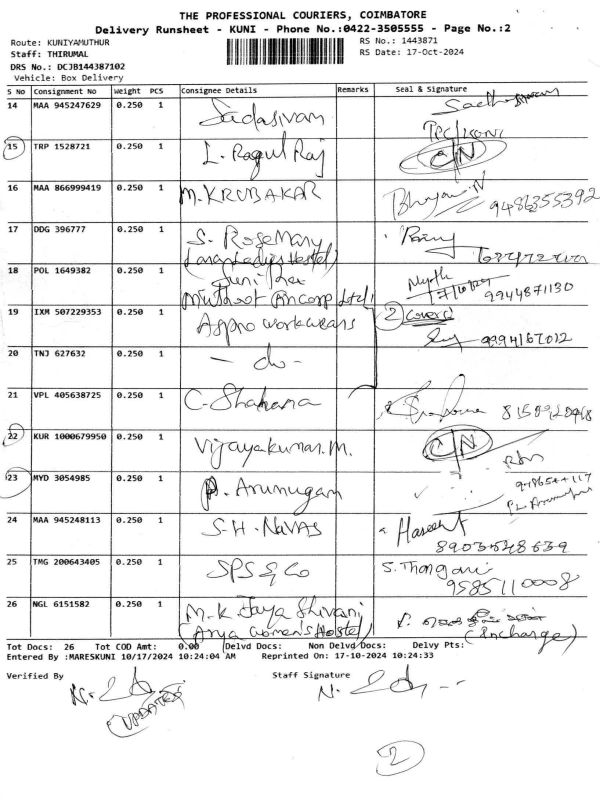 THE PROFESSIONAL COURIERS, COIMBATORE
Delivery Runsheet - KUNI - Phone No.:0422-3505555 - Page No.:2
Route: KUNIYAMUTHUR
RS No.: 1443871
Staff: THIRUMAL
RS Date: 17-Oct-2024
DRS No.: DCJB144387102
Vehicle: Box Delivery
S No Consignment No Weight PCS Consignee Details Remarks Seal & Signature
14 MAA 945247629 0.250 1 Sadasivam
15 TRP 1528721 0.250 1 L. Ragul Raj C/N
16 MAA 866999419 0.250 1 M. KRUBAKAR 9486355392
17 DDG 396777 0.250 1 S. Rosemary
Ladies Hostel)
18 POL 1649382 0.250 1
Muthoot Fincorp Ltd, 17/10/24 9944871130
19 IXM 507229353 0.250 1 Aspro workwears 2 covers
9994167012
20 TNJ 627632 0.250 1 - do -
21 VPL 405638725 0.250 1 C. Shahana
22 KUR 1000679950 0.250 1 Vijayakumar. M. C/N
23 MYD 3054985 0.250 1 P. Arumugam
24 MAA 945248113 0.250 1 S.H. NAVAS
8903548639
25 TMG 200643405 0.250 1 SPS & Co S. Thangam
9585110008
26 NGL 6151582 0.250 1 M. K Jaya Shivani
(Arya Women's Hostel) (Incharge)
Tot Docs: 26 Tot COD Amt: 0.00 Delvd Docs: Non Delvd Docs: Delvy Pts:
Entered By :MARESKUNI 10/17/2024 10:24:04 AM Reprinted On: 17-10-2024 10:24:33
Verified By
Staff Signature
UPDATED
2